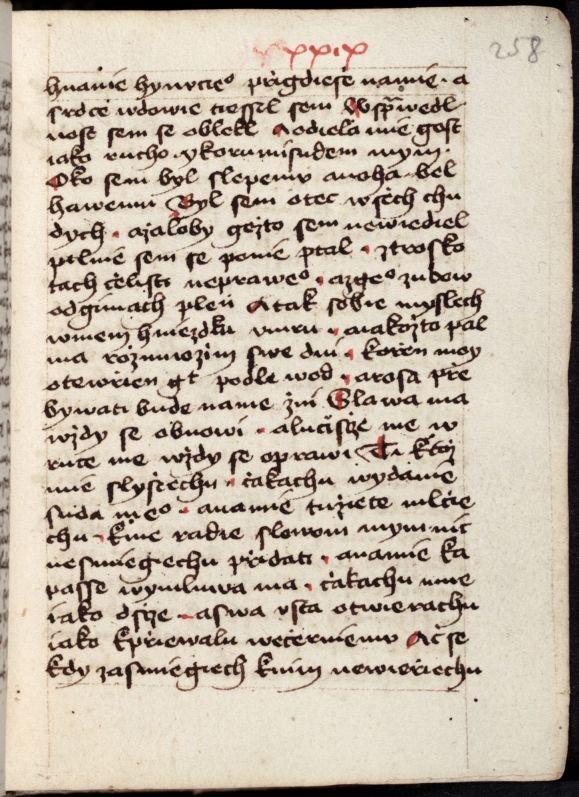 xxix
258
hnanie hynucie⁰ přigdieſe namie · a
srdce wdowie tieſſel sem Wſprawedl
noſt sem se oblekl A odiela mie geſt
iako rucho · y korunu sudem mym ·
Oko sem byl slepemu a noha · bel
hawemu Byl sem otec wſech chu
dych · a zaloby gezto sem newiediel
pilnie sem se ponie ptal · ztrosko
tach čeliſti nepraweº · a zgeº zubow
odgimach pleň A tak sobie myſlech
wmem hniezdku umru · a iakožto pal
ma rozmnozim swe dni · koren moy
otewřien gt podle wod · a rosa pře
bywati bude na me žni Slawa ma
wždy se obnowi · a lučiſſze me w
ruce me wždy se oprawi Ti ktož
mie slyſiechu · čakachu wydanie
suda meº · a na mie tužiece mlčie
chu · k mie radie slowom mym nic
nesmiegiechu přidati · a na mie ka
paſſe wymluwa ma · čakachu mne
iako dſſze · a swa uſta otwierachu
iako kpřiewalu wečerniemu Ac se
kdy zasmiegiech knim newieřiechu